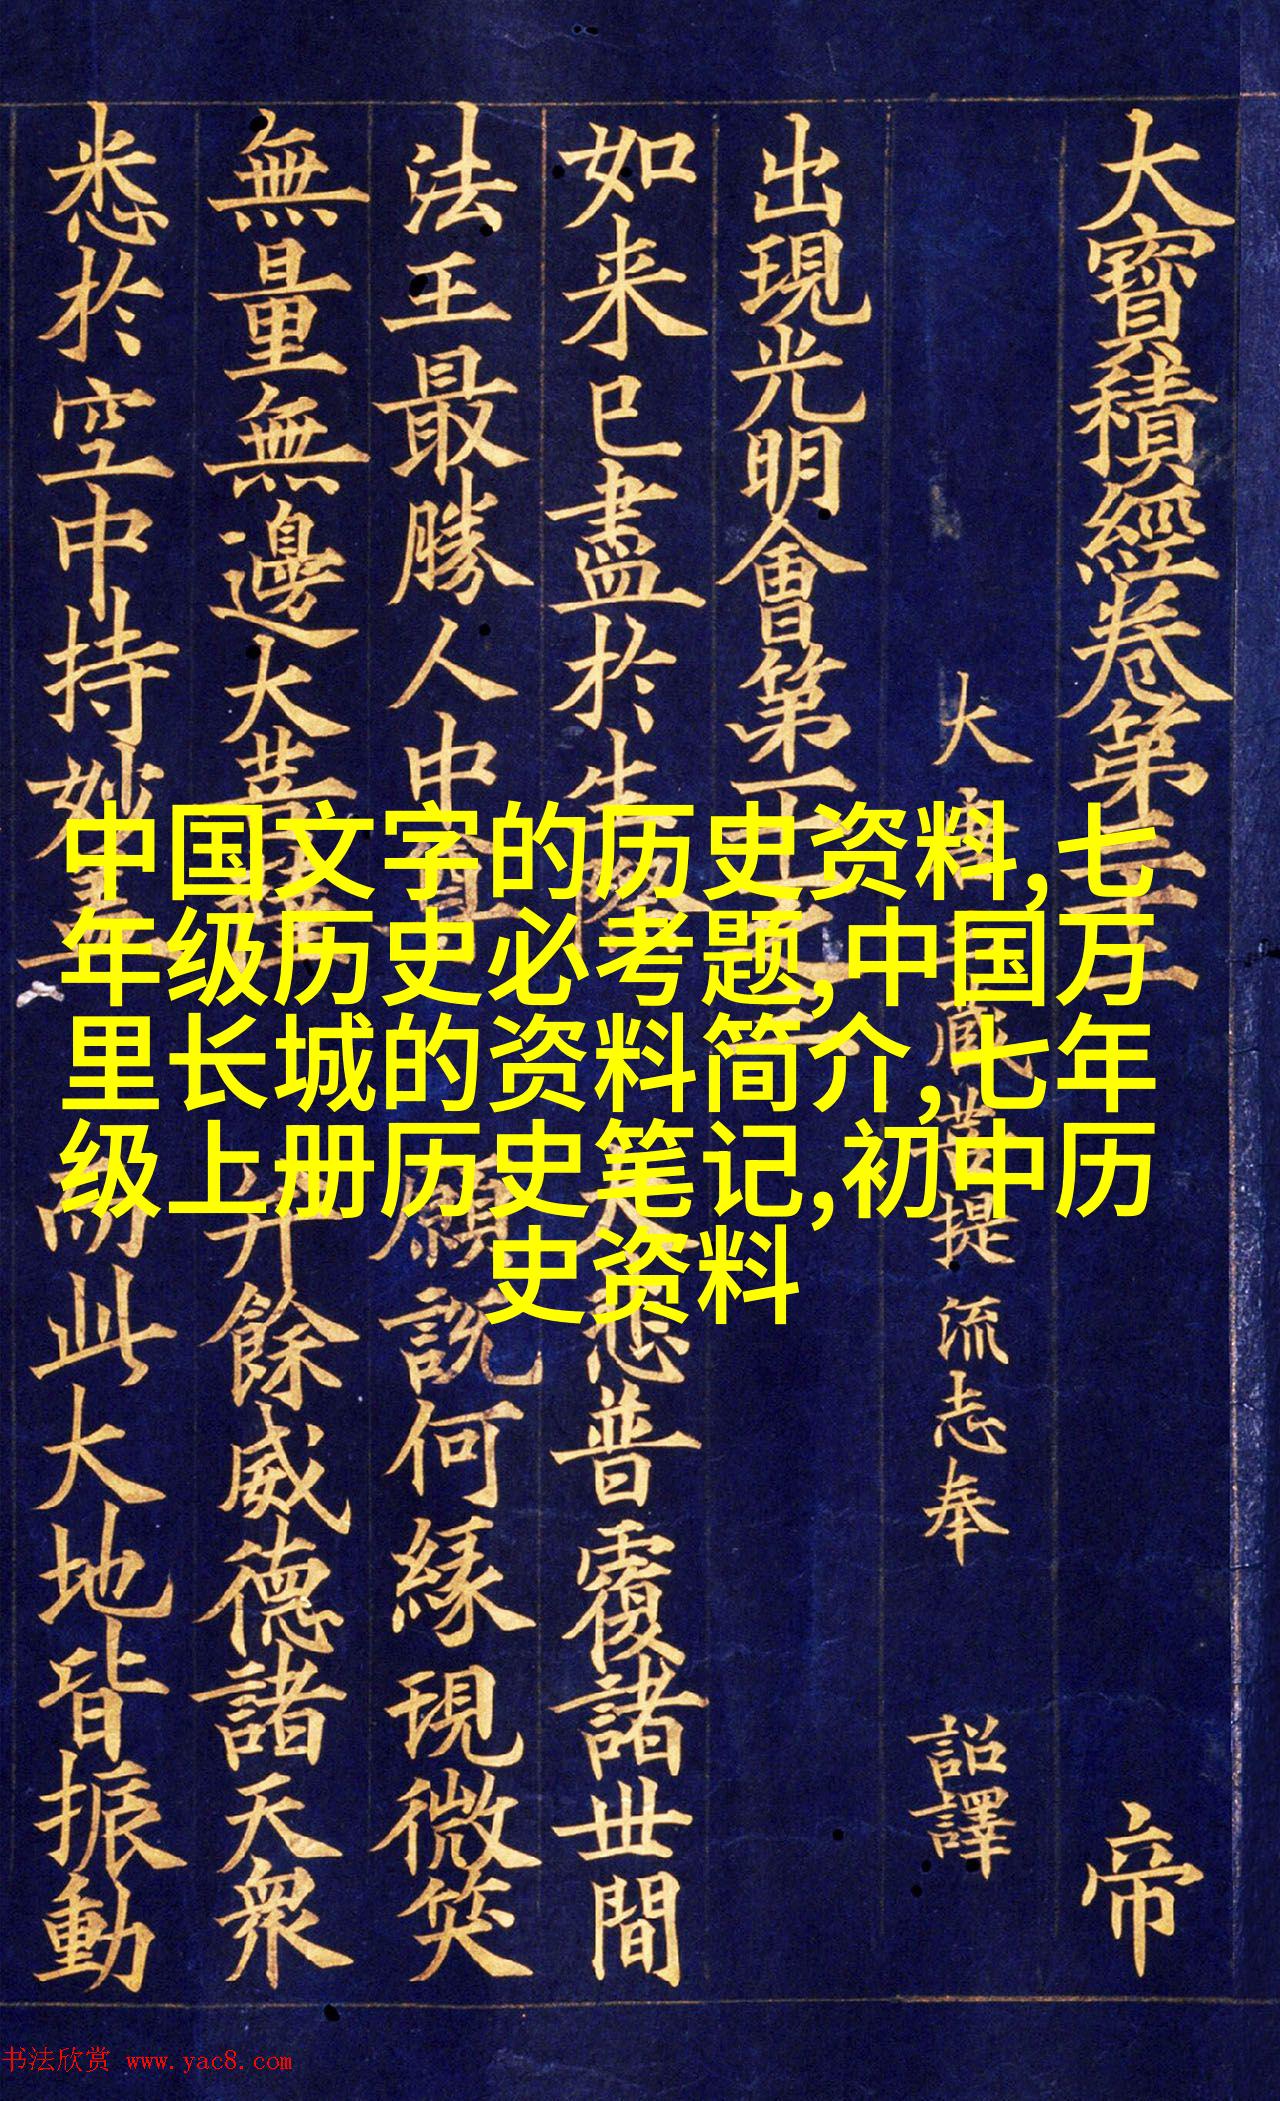 大寶積經卷第三十二 帝
大唐三藏菩提流志奉 詔譯
出現光明會第十一之三
如来已盡於生際 大悲普覆諸世間
法王最勝人中尊 願說何緣現微笑
無量無邊大菩薩 并餘威德諸天衆
悉於空中持妙蓋 而此大地皆振動
中国文字的历史资料,七
年级历史必考题,中国万
里长城的资料简介,七年
级上册历史笔记,初中历
史资料
书法欣赏 www.yac8.com